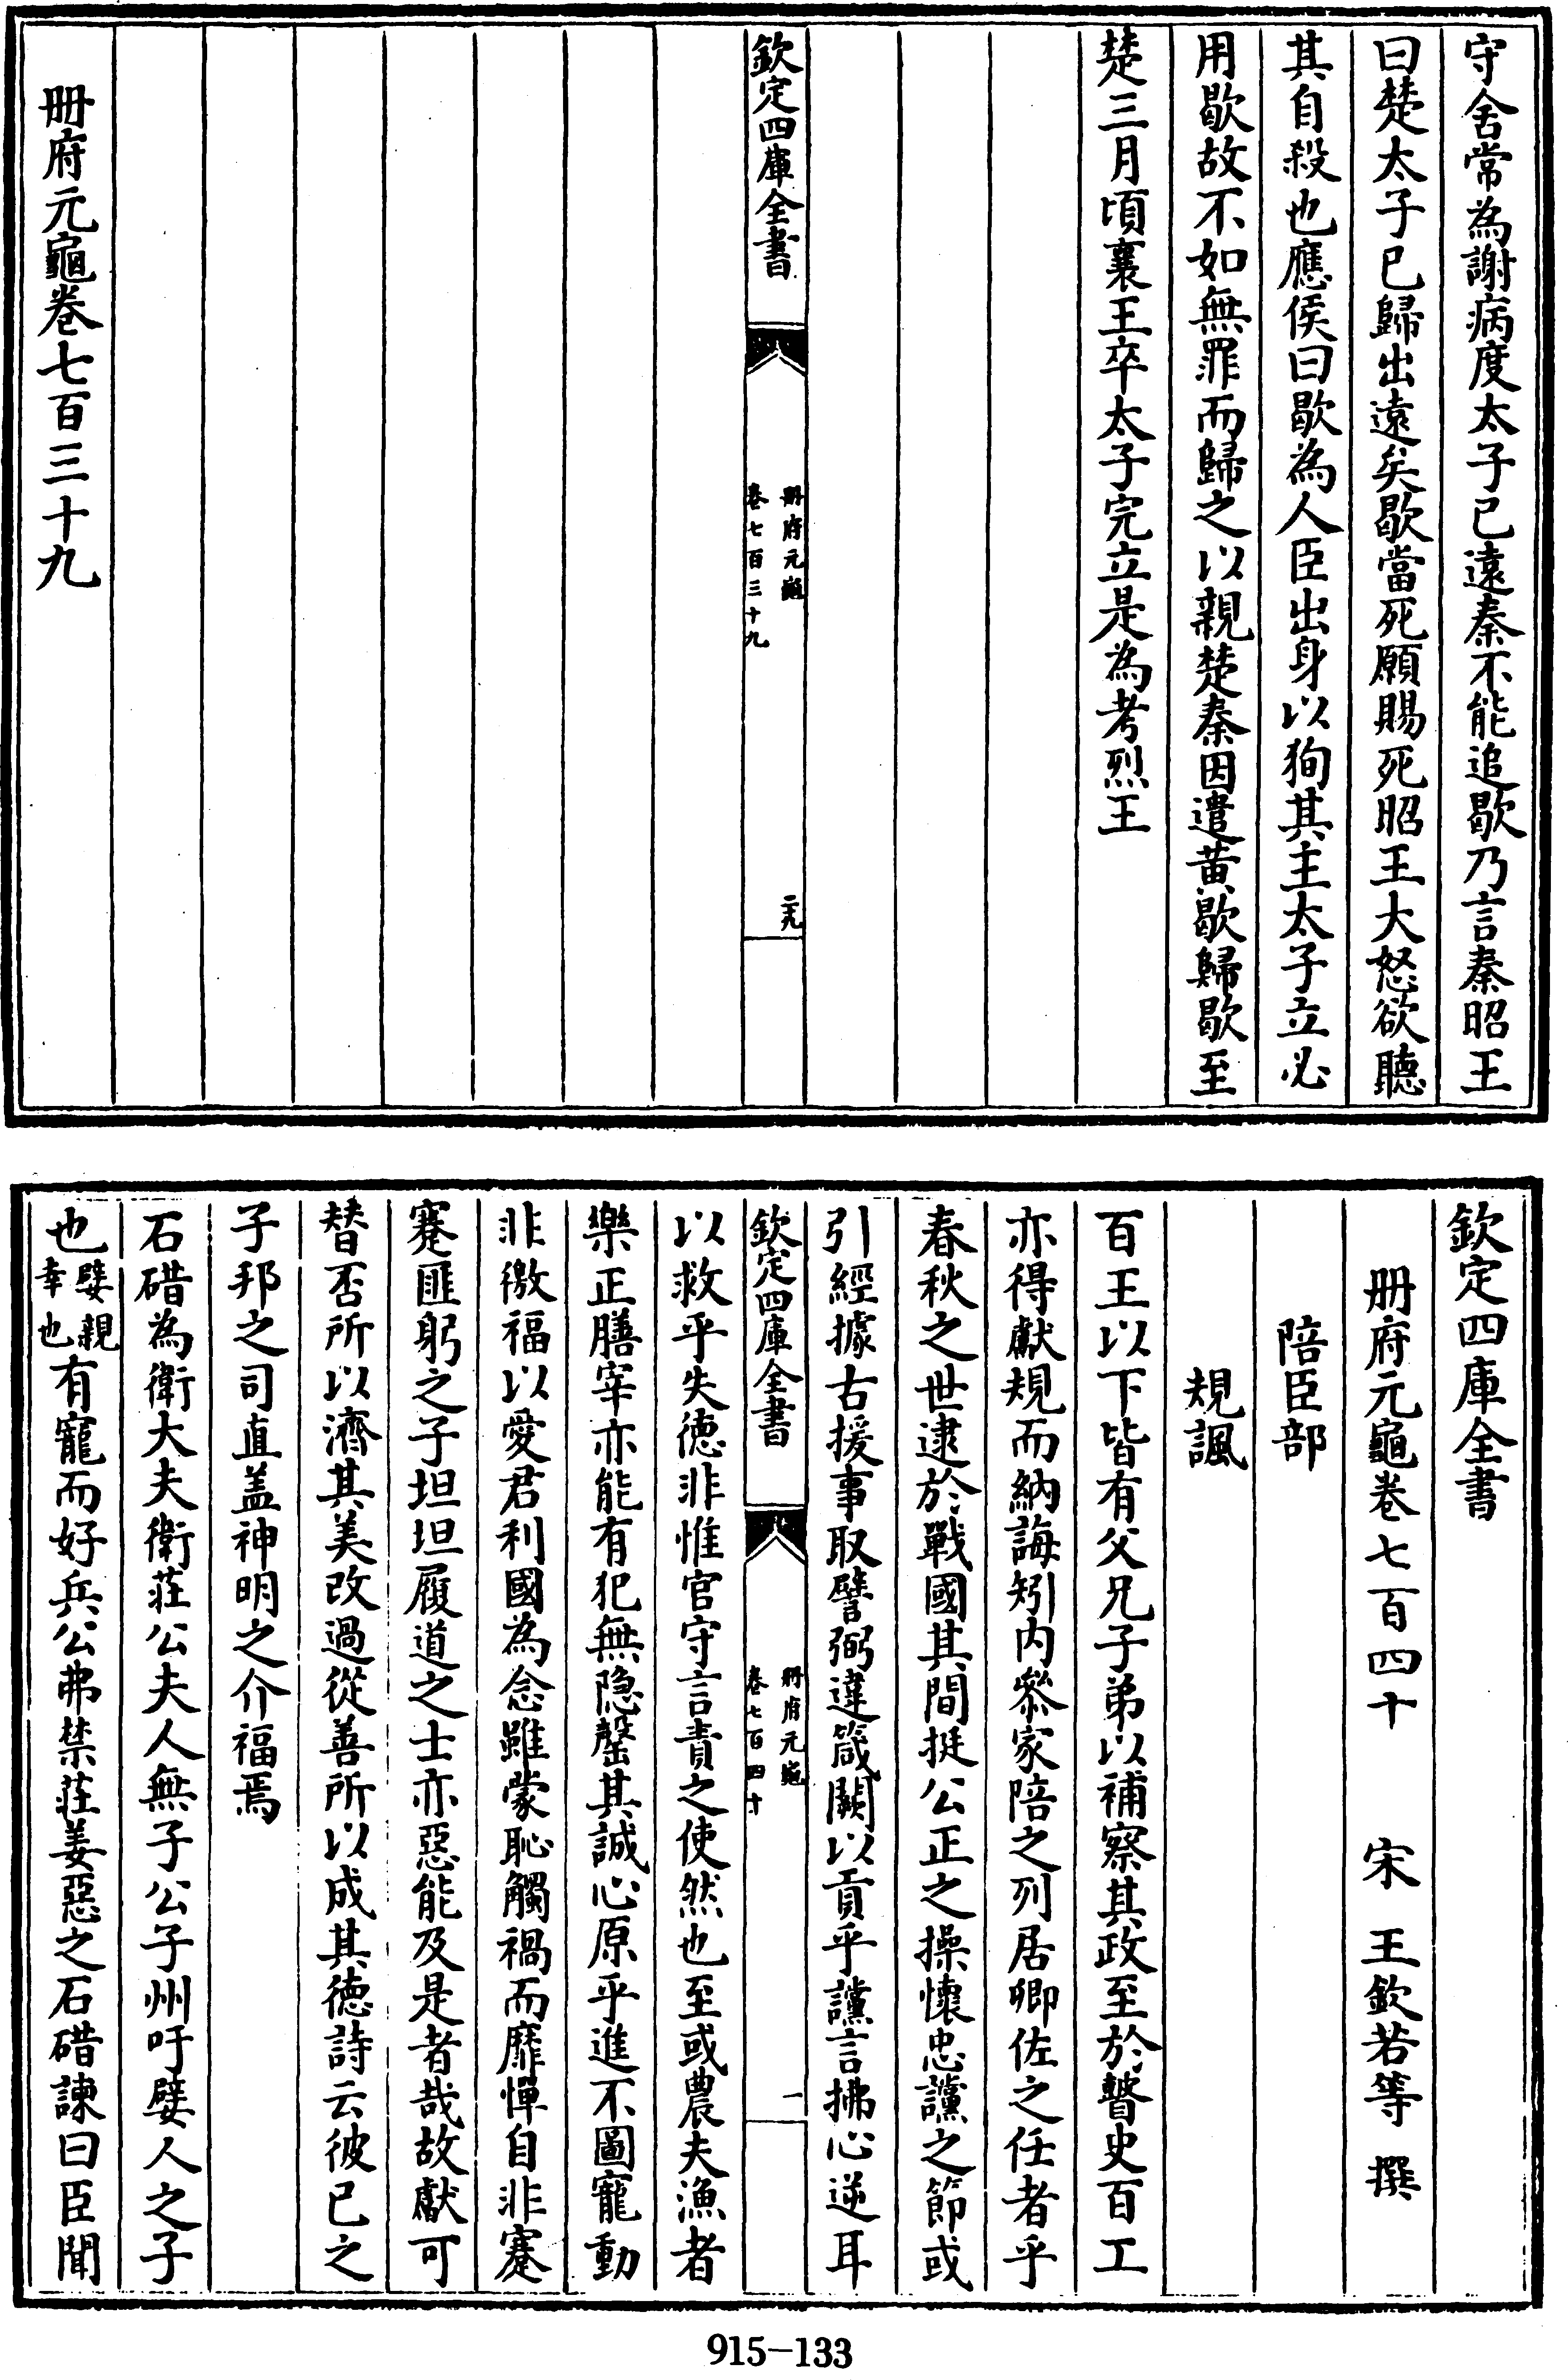 守舍常為謝病度太子已遠秦不能追歇乃言秦昭王
曰楚太子已歸出遠矣歇當死願賜死昭王大怒欲聽
其自殺也應侯曰歇為人臣出身以狥其主太子立必
用歇故不如無罪而歸之以親楚秦因遣黄歇歸歇至
楚三月頃襄王卒太子完立是為考烈王
欽定四庫全書
冊府元龜
卷七百三十九
二十九
冊府元龜卷七百三十九
欽定四庫全書
冊府元龜卷七百四十 宋 王欽若等 撰
陪臣部
規諷
百王以下皆有父兄子弟以補察其政至於瞽史百工
亦得獻規而納誨矧内叅家陪之列居卿佐之任者乎
春秋之世逮於戰國其間挺公正之操懷忠讜之節或
引經據古援事取譬弼違箴闕以貢乎讜言拂心逆耳
欽定四庫全書
冊府元龜
卷七百四十
一
以救乎失徳非惟官守言責之使然也至或農夫漁者
樂正膳宰亦能有犯無隐罄其誠心原乎進不圖寵動
非徼福以愛君利國為念雖蒙恥觸禍而靡憚自非蹇
蹇匪躬之子坦坦履道之士亦惡能及是者哉故獻可
替否所以濟其美改過從善所以成其徳詩云彼已之
子邦之司直盖神明之介福焉
石碏為衛大夫衛莊公夫人無子公子州吁嬖人之子
也嬖親幸也有寵而好兵公弗禁莊姜惡之石碏諫曰臣聞
915-133